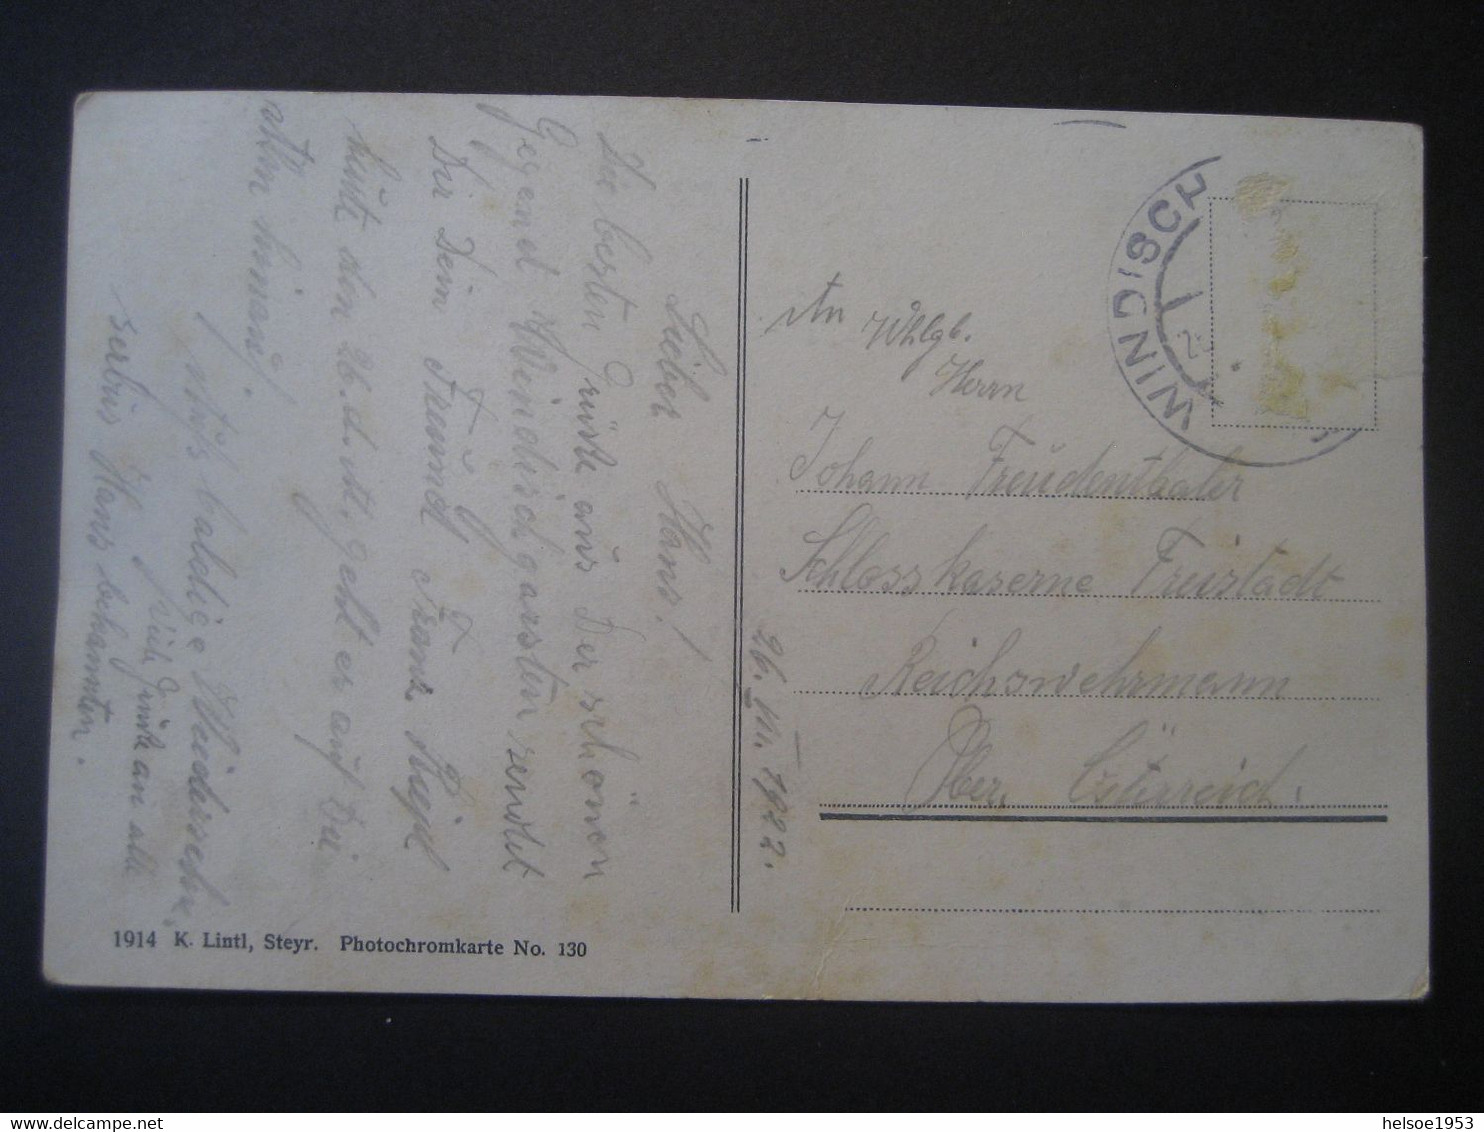 Lieber Hans!
Die besten Grüße aus Der schönen
Gegend Windischgarsten sendet
Dir Dein Freund Franz
heute den 26. d. M. geht er auf Die
Alm hinauf.
Aufs baldige Wiedersehn,
Grüße an alle
serbus Hans bekannten.
1914 K. Lintl, Steyr. Photochromkarte No. 130
26. VII. 1922.
WINDISCH
An
Whlgb.
Herrn
Johann Freudenthaler
Schlosskaserne Freistadt
Reichswehrmann
Ober. Österreich.
helsoe1953